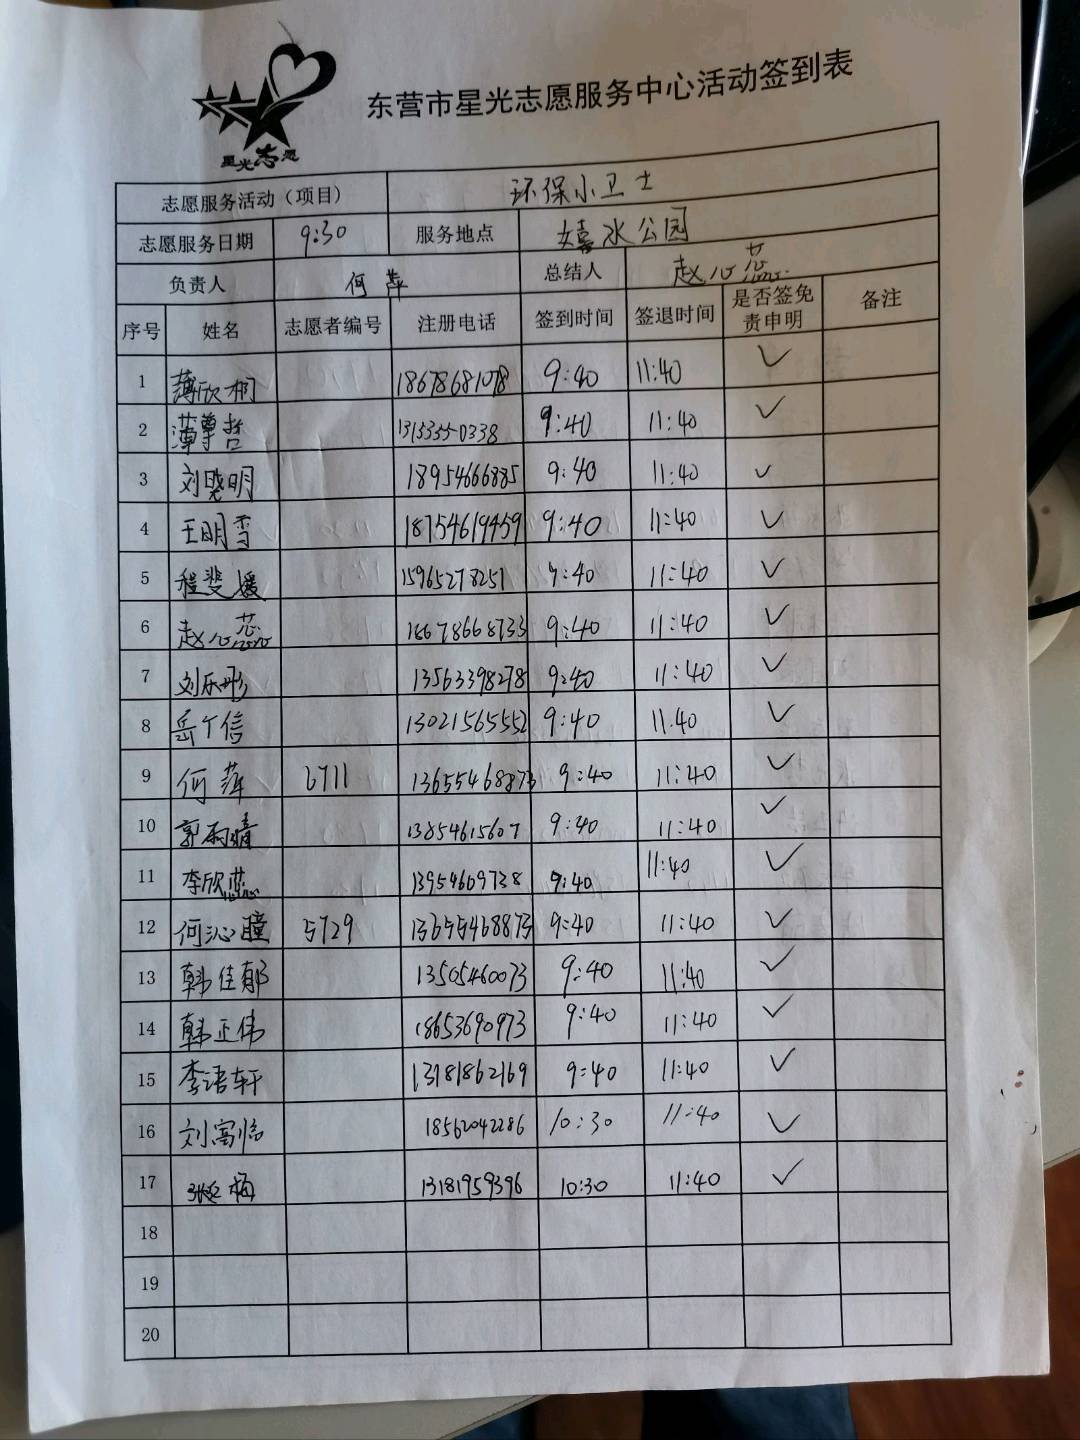 星光志愿
东营市星光志愿服务中心活动签到表
志愿服务活动（项目） 环保小卫士
志愿服务日期 9:30 服务地点 嬉水公园
负责人 何萍 总结人 赵心蕊
序号 姓名 志愿者编号 注册电话 签到时间 签退时间 是否签免责申明 备注
1 薄欣桐 18678681078 9:40 11:40 ✓
2 薄尊哲 13153550338 9:40 11:40 ✓
3 刘晓明 18954666885 9:40 11:40 ✓
4 王明雪 18754619459 9:40 11:40 ✓
5 程斐媛 15965278251 9:40 11:40 ✓
6 赵心蕊 18678668733 9:40 11:40 ✓
7 刘乐彤 13563398278 9:40 11:40 ✓
8 岳个信 13021565552 9:40 11:40 ✓
9 何萍 6711 13655468873 9:40 11:40 ✓
10 郭雨晴 13854615607 9:40 11:40 ✓
11 李欣蕊 13954609738 9:40 11:40 ✓
12 何沁瞳 5729 13655468873 9:40 11:40 ✓
13 韩佳郁 13505460073 9:40 11:40 ✓
14 韩正伟 18653690973 9:40 11:40 ✓
15 李语轩 13181862169 9:40 11:40 ✓
16 刘富临 18562042286 10:30 11:40 ✓
17 梅 13181959396 10:30 11:40 ✓
18
19
20